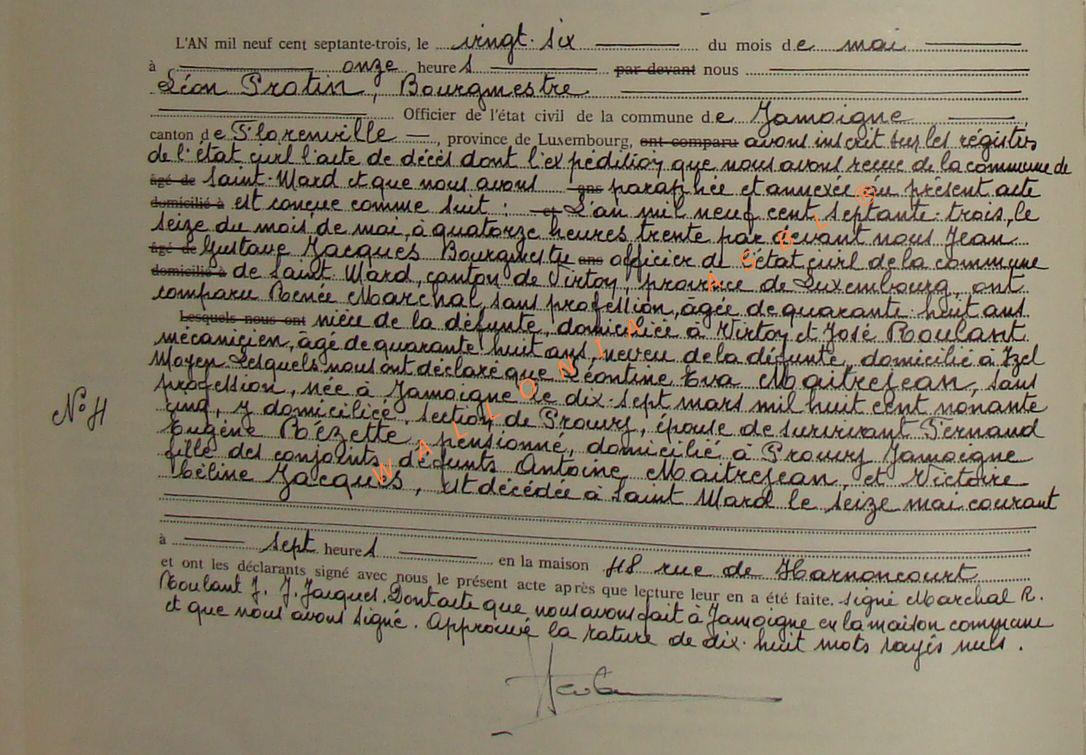 L'AN mil neuf cent septante-trois, le vingt-six du mois de mai
à onze heures par devant nous
Léon Protin, Bourgmestre
Officier de l'état civil de la commune de Jamoigne
canton de Florenville, province de Luxembourg, ont comparu avons inscrit sur les régistres
de l'état civil l'acte de décès dont l'expédition que nous avons recue de la commune de
âgé de Saint-Mard et que nous avons ans paraphée et annexée au présent acte
domicilié à est concue comme suit : et L'an mil neuf cent septante-trois, le
seize du mois de mai, à quatorze heures trente par devant nous Jean
âgé de Gustave Jacques Bourgmestre ans officier de l'état civil de la commune
domicilié à de Saint Mard, canton de Virton, province de Luxembourg, ont
comparu Renée Marchal, sans profession, âgée de quarante-huit ans
Lesquels nous ont nièce de la défunte, domiciliée à Virton et José Roulant
mécanicien, âgé de quarante huit ans, neveu de la défunte, domicilié à Izel
Moyen Lesquels nous ont déclaré que Léontine Eva Maitrejean, sans
profession, née à Jamoigne le dix-sept mars mil huit cent nonante
cinq, y domiciliée, section de Prouvy, épouse de survivant Fernand
Eugène Rézette, pensionné, domicilié à Prouvy Jamoigne
N° 4
fille des conjoints défunts Antoine Maitrejean, et Victoire
Céline Jacques, est décédée à Saint Mard le seize mai courant
à sept heures en la maison 48 rue de Harnoncourt
et ont les déclarants signé avec nous le présent acte après que lecture leur en a été faite. signé Marchal R.
Roulant J. J. Jacques. Dont acte que nous avons fait à Jamoigne en la maison commune
et que nous avons signé. Approuvé la rature de dix-huit mots rayés nuls.
WALLONIA ASBL